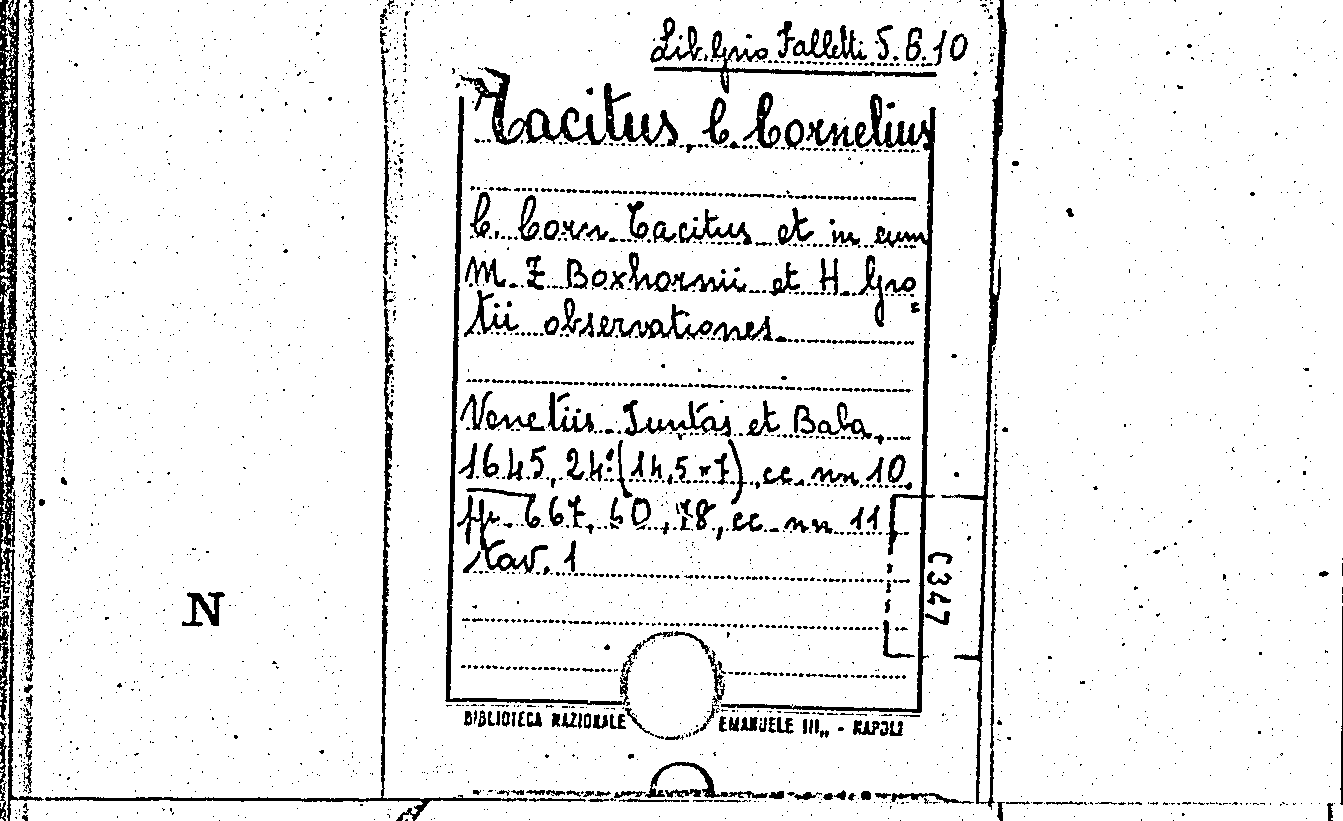 Lib. Grio Falletti 5.6.10
Tacitus, C. Cornelius
C. Corn. Tacitus et in eum
M. Z Boxhornii et H. Gro„
tii observationes.
Venetiis. Juntas et Baba,
1645, 24.° (14,5 x 7), cc. nn 10.
pp. 667, 60, 78, cc. nn 11
tav. 1
C347
N
BIBLIOTECA NAZIONALE EMANUELE III„ - NAPOLI